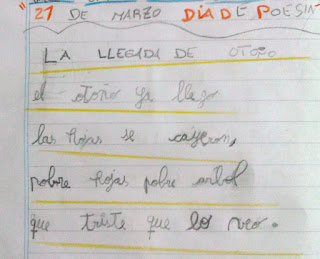 21 DE MARZO DÍA DE POESIA
LA LLEGADA DE OTOÑO
el otoño ya llego
las hojas se cayeron,
pobre hojas pobre arbol
que triste que lo veo.